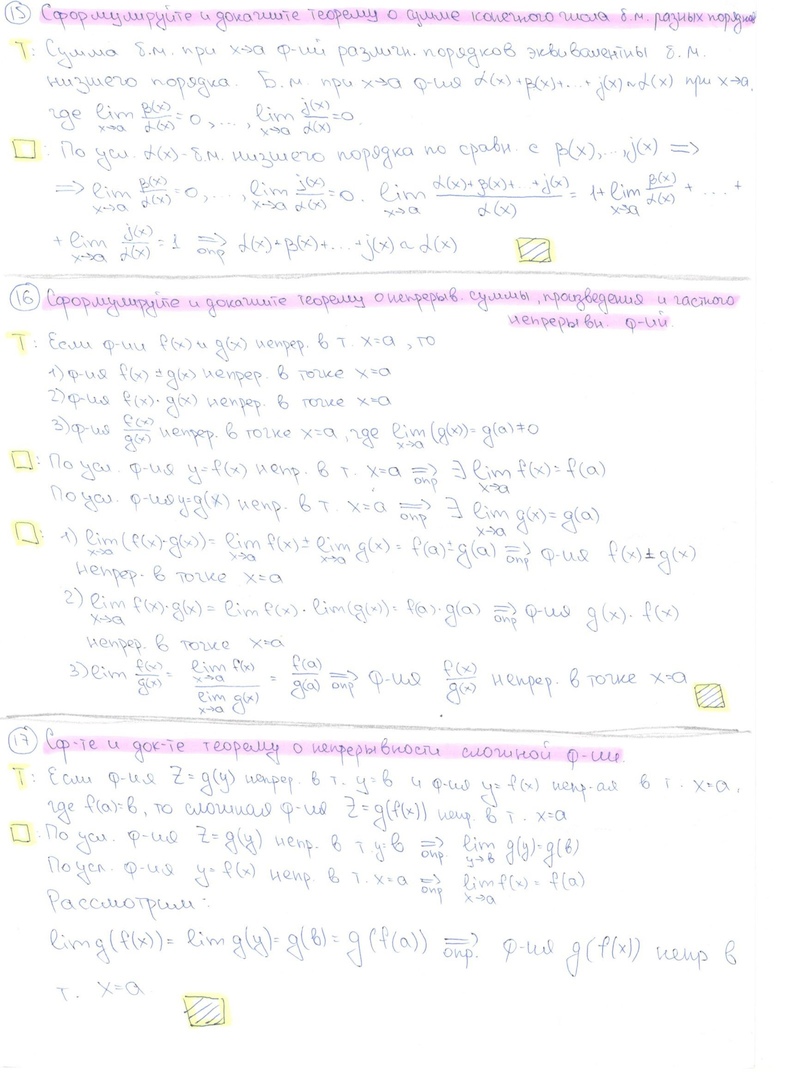 15 Сформулируйте и докажите теорему о сумме конечного числа б.м. разных порядков
Т: Сумма б.м. при x→a ф-ий различн. порядков эквивалентны б.м.
низшего порядка. Б.м. при x→a ф-ия α(x)+β(x)+...+j(x)~α(x) при x→a,
где lim x→a β(x)/α(x)=0,..., lim x→a j(x)/α(x)=0.
□: По усл. α(x)-б.м. низшего порядка по сравн. с β(x),...,j(x) =>
=> lim x→a β(x)/α(x)=0,..., lim x→a j(x)/α(x)=0. lim x→a (α(x)+β(x)+...+j(x))/α(x) = 1+lim x→a β(x)/α(x)+...+
+ lim x→a j(x)/α(x)=1 => опр α(x)+β(x)+...+j(x)~α(x)
16 Сформулируйте и докажите теорему о непрерыв. суммы, произведения и частного
непрерывн. ф-ий.
Т: Если ф-ии f(x) и g(x) непрер. в т. x=a, то
1) ф-ия f(x)±g(x) непрер. в точке x=a
2) ф-ия f(x)·g(x) непрер. в точке x=a
3) ф-ия f(x)/g(x) непрер. в точке x=a, где lim x→a (g(x))=g(a)≠0
□: По усл. ф-ия y=f(x) непр. в т. x=a => опр ∃ lim x→a f(x)=f(a)
По усл. ф-ия y=g(x) непр. в т. x=a => опр ∃ lim x→a g(x)=g(a)
□: 1) lim x→a (f(x)·g(x))= lim x→a f(x)± lim x→a g(x)= f(a)±g(a) => опр ф-ия f(x)±g(x)
непрер. в точке x=a
2) lim x→a f(x)·g(x)= lim f(x)·lim(g(x))= f(a)·g(a) => опр ф-ия g(x)·f(x)
непрер. в точке x=a
3) lim f(x)/g(x) = lim x→a f(x) / lim x→a g(x) = f(a)/g(a) => опр ф-ия f(x)/g(x) непрер. в точке x=a
17 Сф-те и док-те теорему о непрерывности сложной ф-ии.
Т: Если ф-ия Z=g(y) непрер. в т. y=в и ф-ия y=f(x) непр-ая в т. x=a,
где f(a)=в, то сложная ф-ия Z=g(f(x)) непр. в т. x=a
□: По усл. ф-ия Z=g(y) непр. в т. y=в => опр. lim y→в g(y)=g(в)
По усл. ф-ия y=f(x) непр. в т. x=a => опр lim x→a f(x)=f(a)
Рассмотрим:
lim g(f(x))= lim g(y)= g(в)= g(f(a)) => опр. ф-ия g(f(x)) непр в
т. x=a